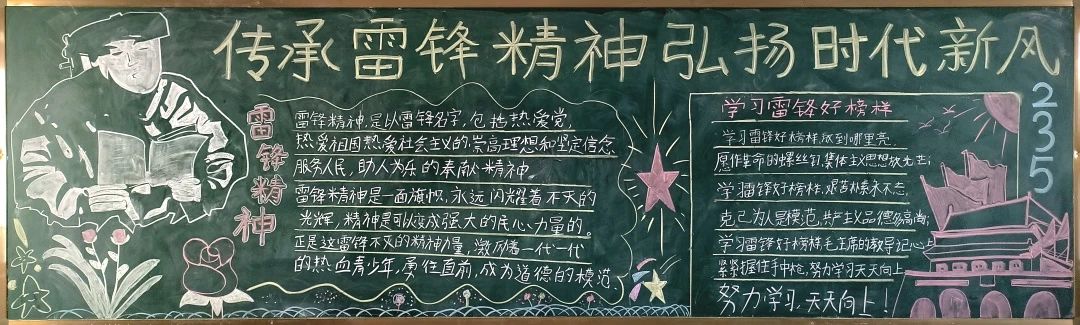 传承雷锋精神弘扬时代新风
雷锋精神
雷锋精神,是以雷锋名字,包括热爱党,
热爱祖国热爱社会主义的崇高理想和坚定信念
服务人民,助人为乐的奉献精神。
雷锋精神是一面旗帜,永远闪耀着不灭的
光辉,精神是可以变成强大的民心力量的。
正是这雷锋不灭的精神力量,激励着一代一代
的热血青少年,勇往直前,成为道德的模范.
学习雷锋好榜样
学习雷锋好榜样,放到哪里亮,
愿作革命的螺丝钉,集体主义思想放光芒;
学习雷锋好榜样,艰苦朴素永不忘,
克己为人是模范,共产主义品德多高尚;
学习雷锋好榜样,毛主席的教导记心上
紧紧握住手中枪,努力学习天天向上
努力学习,天天向上!
2235